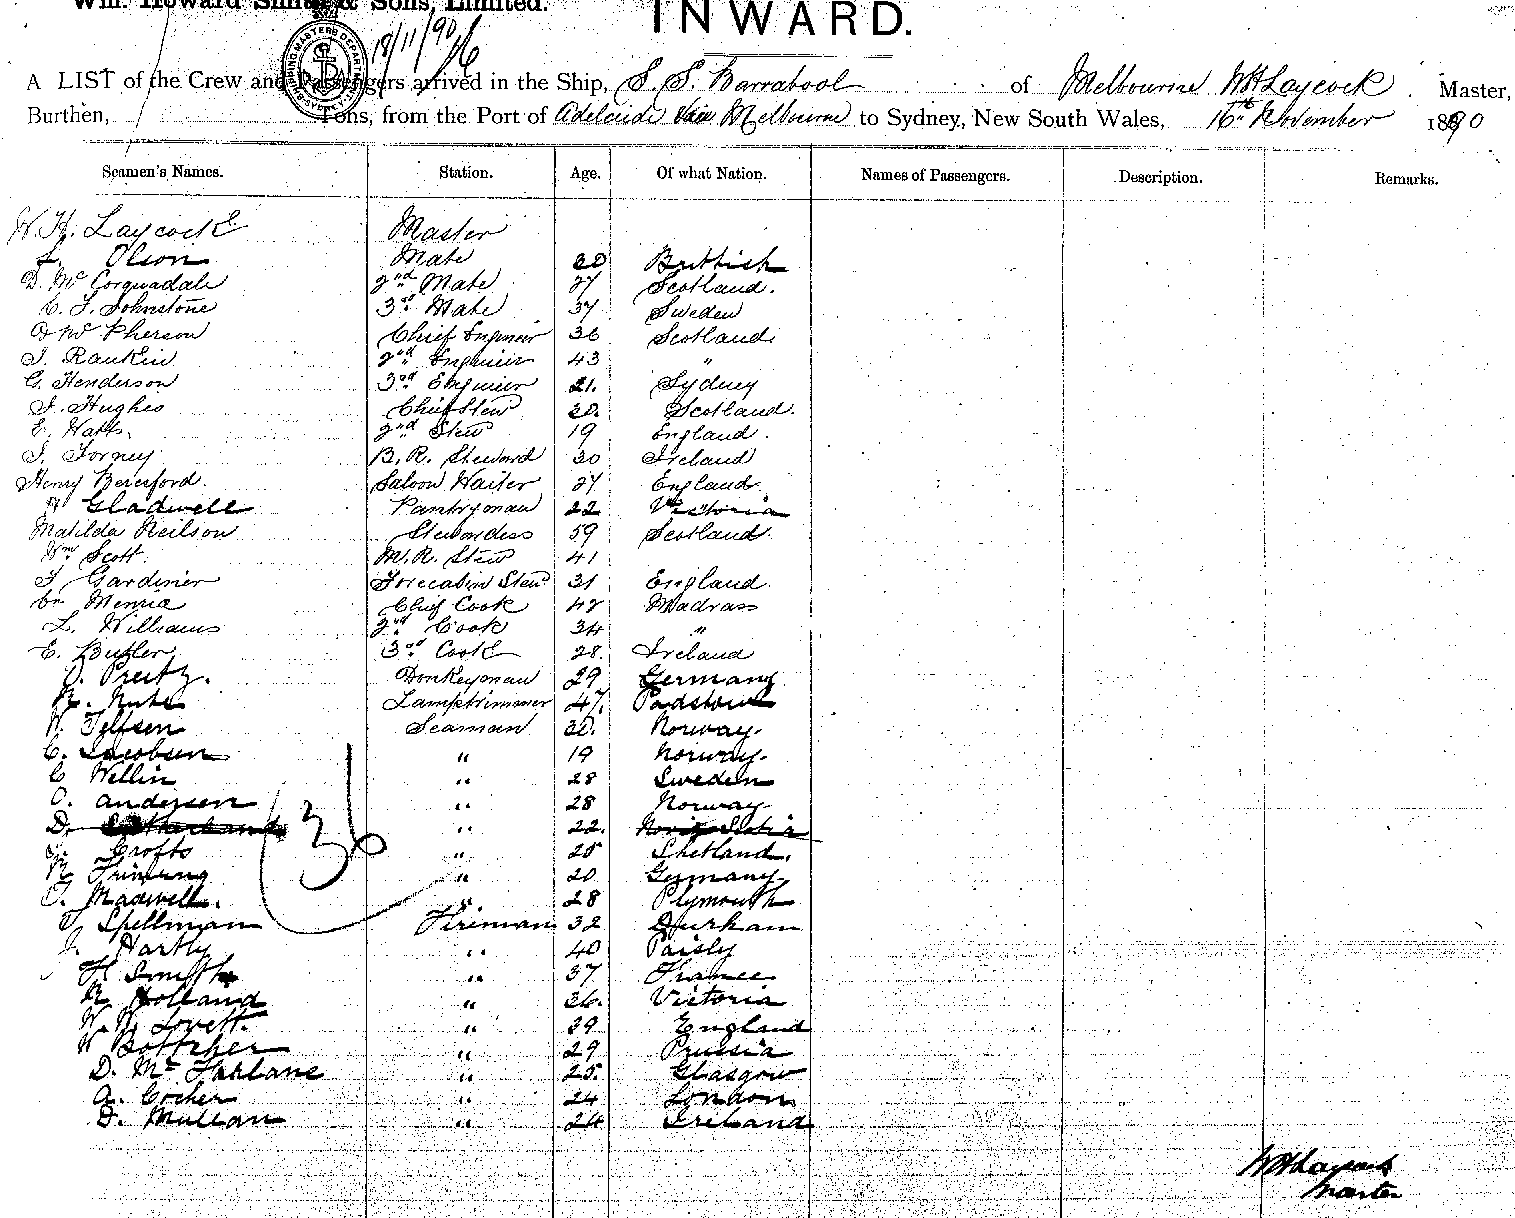 Wm. Howard Smith & Sons, Limited.
INWARD.
18/11/90
A LIST of the Crew and Passengers arrived in the Ship, S. S. Barrabool of Melbourne WH Laycock Master,
Burthen, Tons, from the Port of Adelaide via Melbourne to Sydney, New South Wales, 16th November 1890
Seamen's Names. Station. Age. Of what Nation. Names of Passengers. Description. Remarks.
W. H. Laycock Master
Olson Mate Brittish
D. Mc Corquadale 2nd Mate 27 Scotland.
C. J. Johnstone 3rd Mate 37 Sweden
Mc Pherson Chief Engineer 36 Scotland
J. Rankin 2nd Engineer 43 "
G. Henderson 3rd Engineer 21. Sydney
J. Hughes Chief Stew 20. Scotland.
E. Watts. 2nd Stew 19 England.
J. Torney B. R. Steward 30 Ireland
Henry Bereford. Saloon Waiter 27 England
Gladwell Pantryman 22 Victoria
Matilda Neilson Stewardess 59 Scotland.
Wm Scott. M. R. Stew 41
J Gardiner Forecabin Stew 31 England.
Chief Cook 42 Madrass
L. Williams 2nd Cook 34 "
E. Butler 3rd Cook 28. Ireland
Preitz. Donkeyman 29 Germany
Lamptrimmer 47. Padstow
Seaman Norway.
C. Jacobsen " 19 Norway.
C Wellin " 28 Sweden
O. Andersen " 28 Norway
36
D. Sutherland " 22. Nova Scotia
Crofts " 25 Shetland.
" 20 Germany.
Maxwell. " 28 Plymouth
Spellman Fireman 32 Durham
J. Hartly " 40 Paisly
H. Smith " 37 France
Holland " 26. Victoria
W. W. Lovett. " 39 England
W Bottcher " 29 Prussia
D. Mc Farlane " 25. Glasgow
A. Cocher " 24 London
D. Mullan " 24 Ireland
WH Laycock
Master